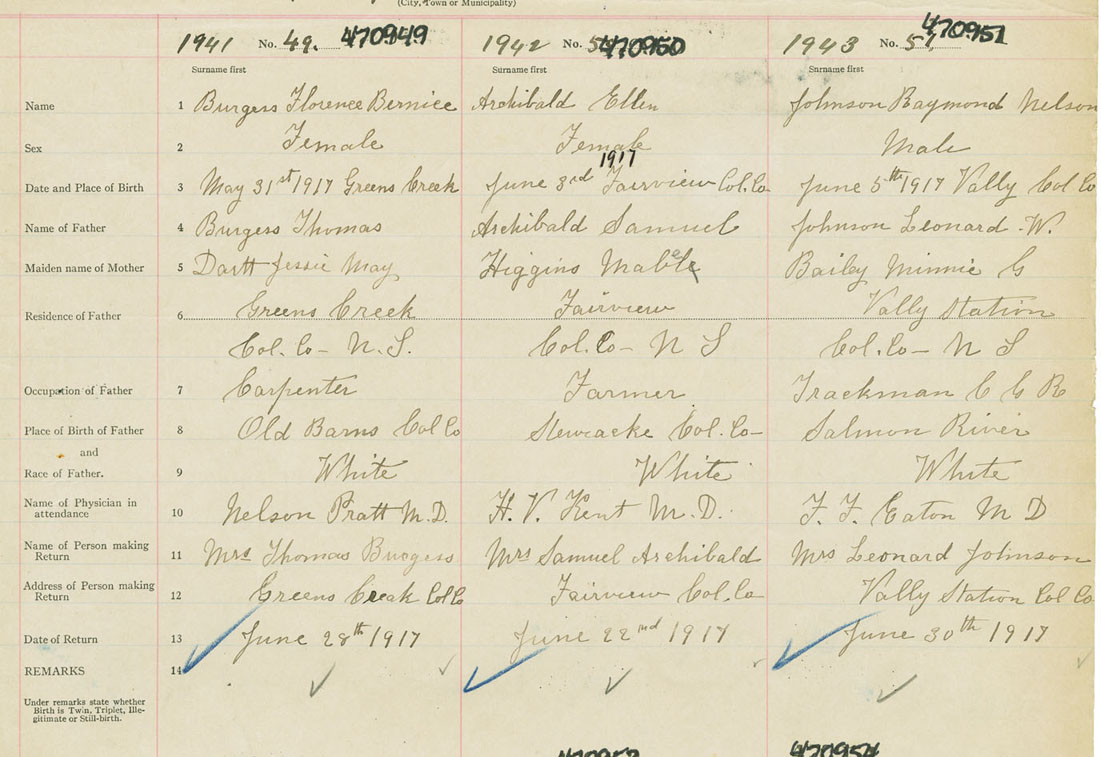 (City, Town or Municipality)
1941 No. 49. 470949 1942 No. 470950 1943 No. 51, 470951
Surname first Surname first Surname first
Name 1 Burgess Florence Bernice Archibald Ellen Johnson Raymond Nelson
Sex 2 Female Female Male
1917
Date and Place of Birth 3 May 31st 1917 Greens Creek June 3rd Fairview Col. Co June 5th 1917 Vally Col Co
Name of Father 4 Burgess Thomas Archibald Samuel Johnson Leonard W.
Maiden name of Mother 5 Dartt Jessie May Higgins Bailey Minnie G
Residence of Father 6 Greens Creek Fairview Vally Station
Col. Co- N. S. Col. Co- N S Col. Co- N S
Occupation of Father 7 Carpenter Farmer Trackman C G R
Place of Birth of Father 8 Old Barns Col Co Stewiacke Col. Co- Salmon River
and
Race of Father. 9 White White White
Name of Physician in
attendance 10 Nelson Pratt M.D. H. V. Kent M.D. F. F. Eaton M D
Name of Person making
Return 11 Mrs Thomas Burgess Mrs Samuel Archibald Mrs Leonard Johnson
Address of Person making
Return 12 Greens Creak Col Co Fairview Col. Co Vally Station Col Co
Date of Return 13 June 28th 1917 June 22nd 1917 June 30th 1917
REMARKS 14
Under remarks state whether
Birth is Twin, Triplet, Ille-
gitimate or Still-birth.